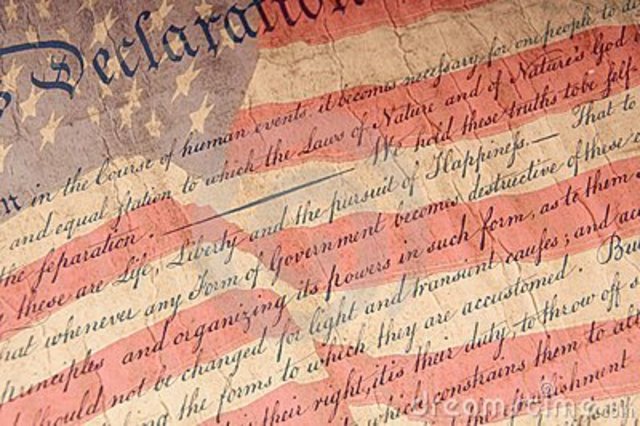 Declaration
n in the Course of human events, it becomes necessary for one people to
and equal station to which the Laws of Nature and of Nature's God
the separation. — We hold these truths to be self
these are Life, Liberty and the pursuit of Happiness. — That to
hat whenever any Form of Government becomes destructive of these
principles and organizing its powers in such form, as to them
should not be changed for light and transient causes; and
ing the forms to which they are accustomed. Bu
their right, it is their duty, to throw off
which constrains them to al
establishment
dreamstime